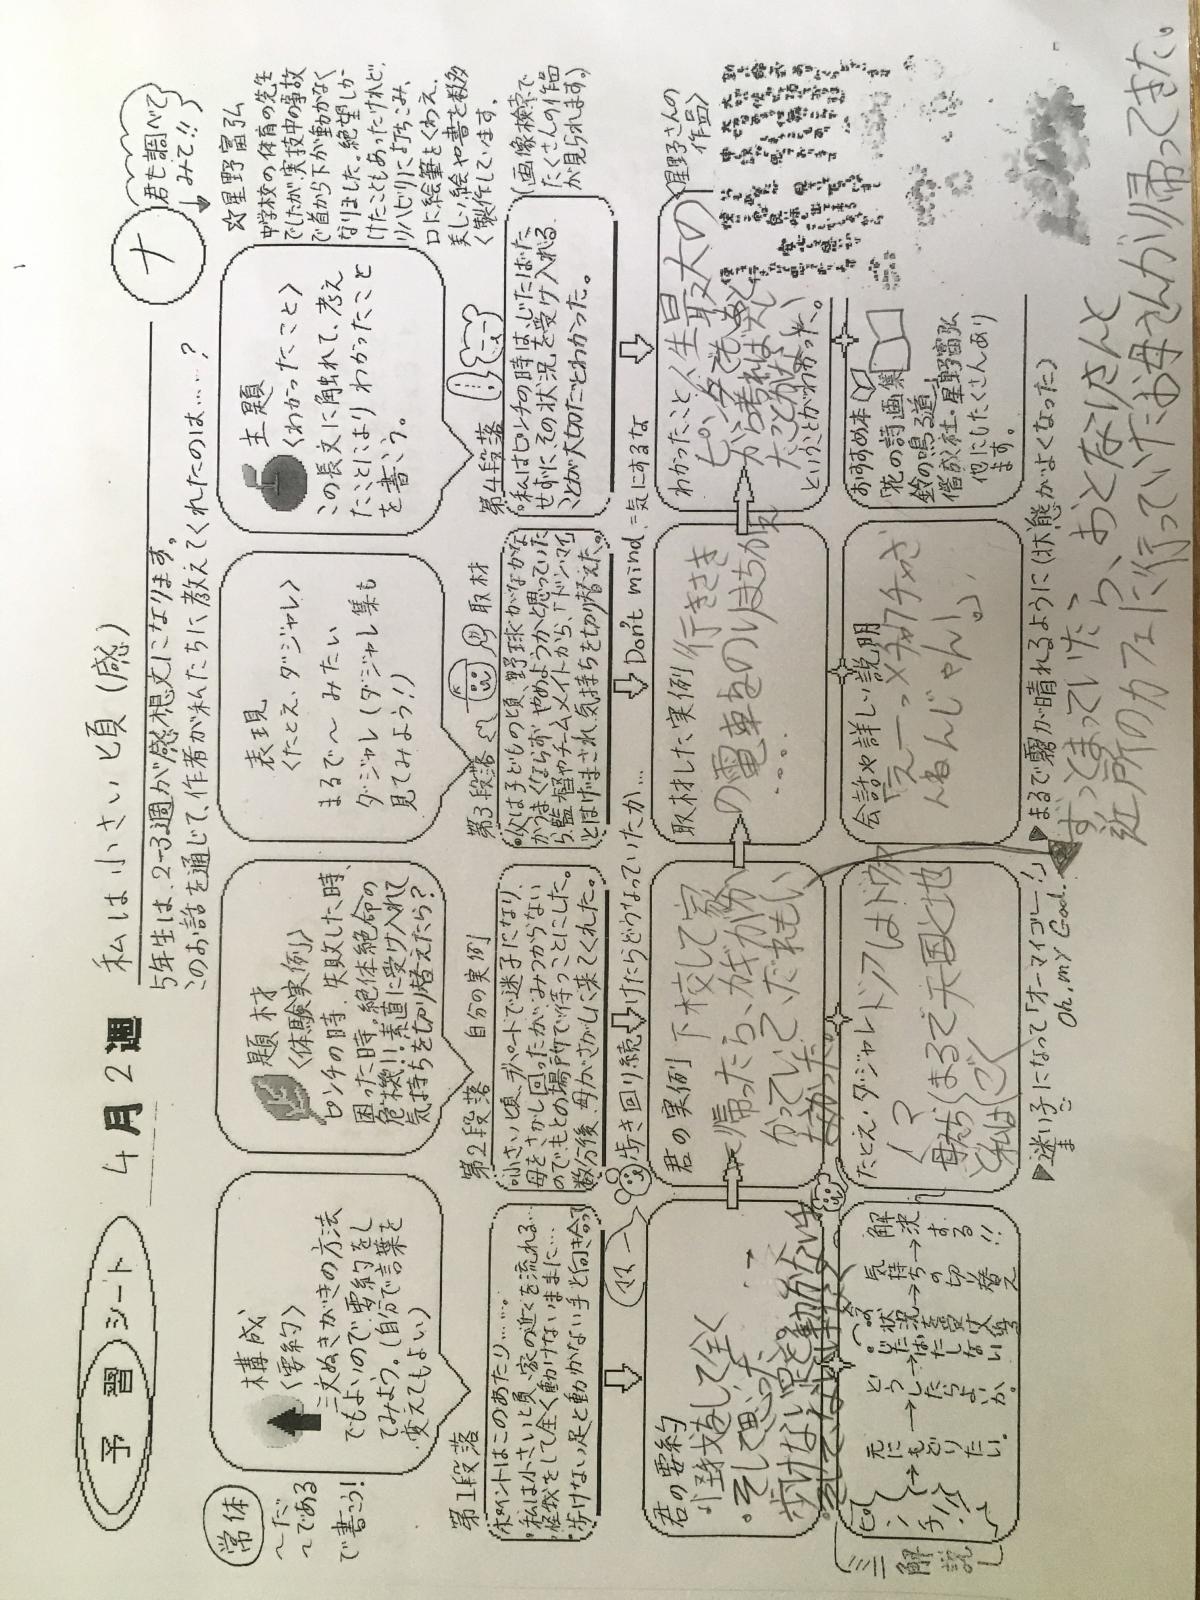 予習シート
4月2週
私は小さい頃(感)
5年生は、2~3週が感想文になります。
このお話を通じて、作者が私たちに教えてくれたのは……?
ナ
君も調べて
みて!!
常体
~だ
~である
で書こう!
構成
〈要約〉
三文ぬきがきの方法
でもよいので要約をし
てみよう。(自分で言葉を
変えてもよい)
題材
〈体験実例〉
ピンチの時、失敗した時、
困った時。絶体絶命の
危機!!素直に受け入れて
気持ちを切り替えたら?
表現
〈たとえ・ダジャレ〉
まるで~みたい
ダジャレ(ダジャレ集も
見てみよう!)
主題
〈わかったこと〉
この長文に触れて、考え
たことによりわかったこと
を書こう。
☆星野富弘
中学校の体育の先生
でしたが実技中の事故
で首から下が動かなく
なりました。絶望しか
けたこともあったけれど、
リハビリに打ちこみ、
口に絵筆をくわえ、
美しい絵や書を数多
く製作しています。
(画像検索で
たくさんの作品
が見られます。)
第1段落
ポイントはこのあたり……。
・私は小さい頃、家の近くを流れる…
・怪我をして全く動けないままに…
・歩けない足と動かない手と向き合って
第2段落 自分の実例
・小さい頃、デパートで迷子になり、
母をさがし回ったがみつからない
のでもとの場所で待つことにした。
数分後、母がさがしに来てくれた。
第3段落 取材
・父は子どもの頃、野球がなかな
かうまくならず、やめようかと思っていた
ら、監督やチームメイトから、「ドンマイ」
とはげまされ気持ちを切り替えた。
第4段落
・私はピンチの時は、じたばた
せずに、その状況を受け入れる
ことが大切だとわかった。
歩き回り続けたらどうなっていたか…
Don't mind.=気にするな
君の要約
・怪我をして全く
・そして思った。
歩けない足と動かない手
君の実例 下校して家
に帰ったら、カギがか
かっていて、だれもい
なかった。
取材した実例 行きさき
の電車をのりまちがえ
…
わかったこと 人生最大の
ピンチでも、あと
から考えれば大し
たことはない
ということがわかった。
〈星野さんの
作品〉
解説
ピンチ
元にもどりたい。
→どうしたらよいか。
→じたばたしない
今の状況を受け入れる
→気持ちの切り替え
→解決する!!
たとえ・ダジャレ
(まるで天国と地
ごく)
会話や詳しい説明
「えーーっ×
んねんじゃん!」
おすすめ本
「花の詩画集
鈴の鳴る道」
偕成社・星野富弘
他にもたくさんあり
ます。
▶迷い子になって「オーマイゴー!」
まご
Oh, my God.
▶まるで霧が晴れるように(状態がよくなった)
ずっとまっていたら、おとなりさんと
近所のカフェに行っていたお母さんが帰ってきた。